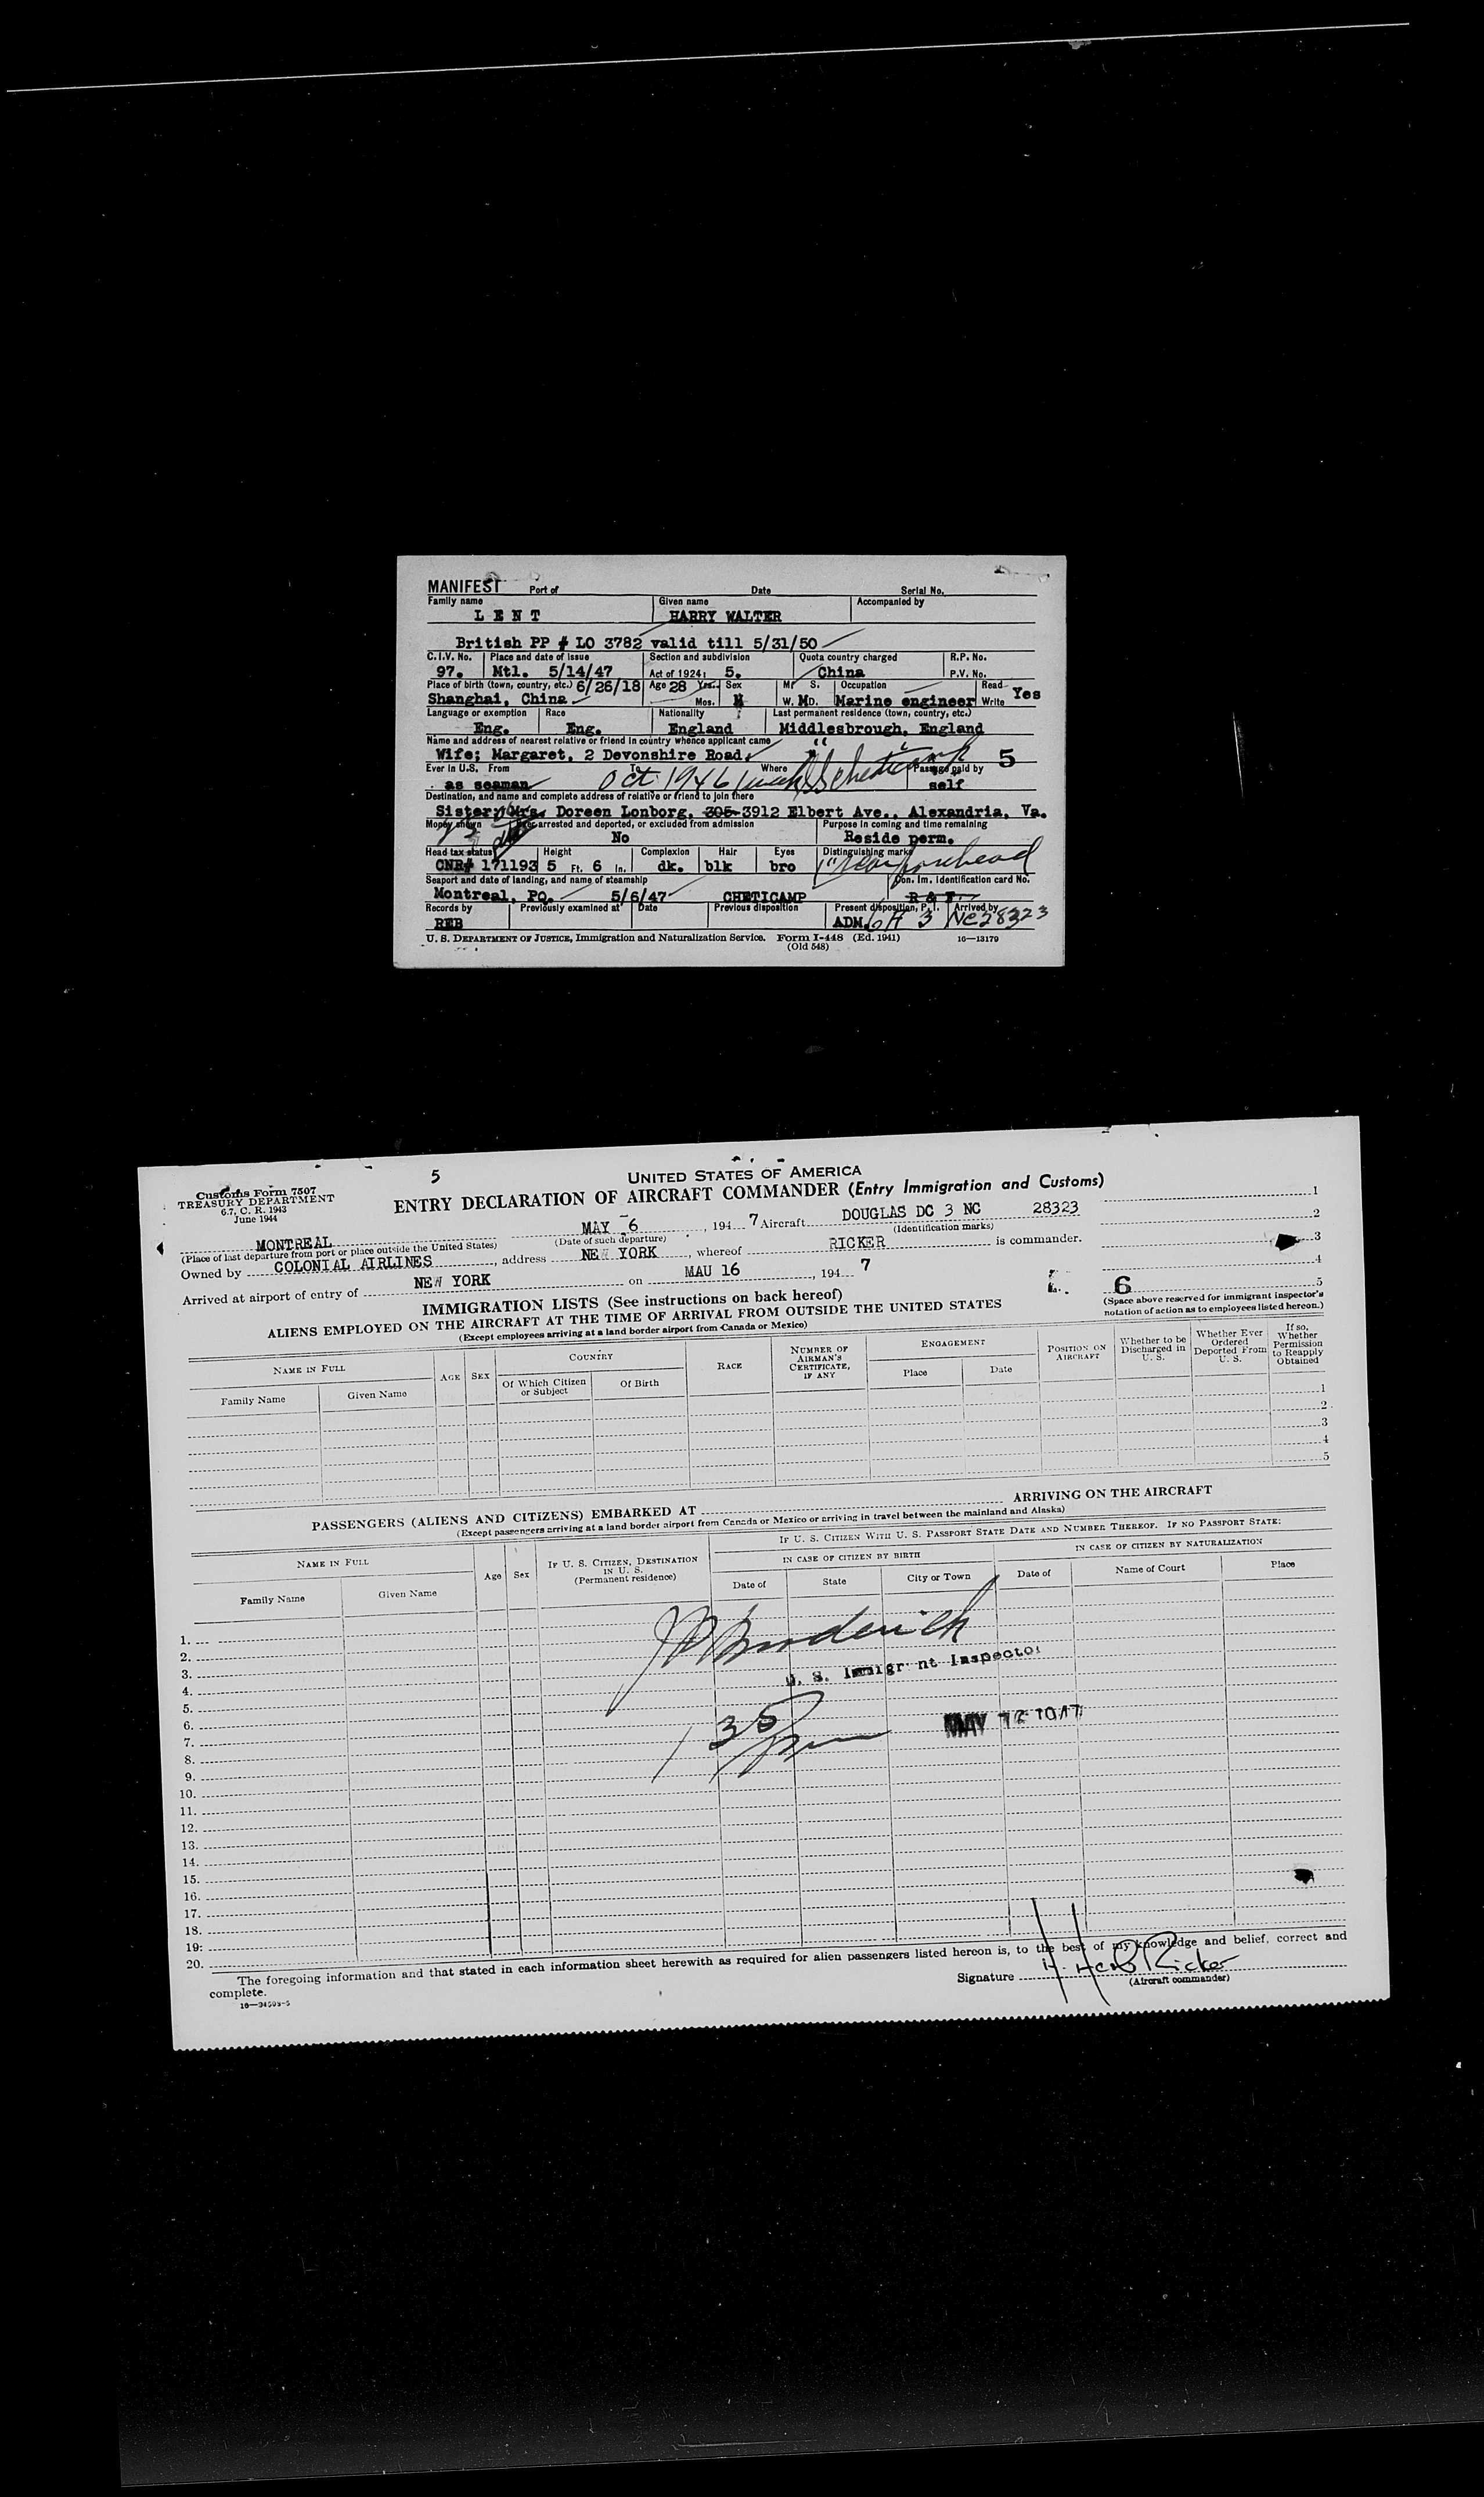 MANIFEST Port of Date Serial No.
Family name Given name Accompanied by
LENT HARRY WALTER
British PP # LO 3782 valid till 5/31/50
C.I.V. No. Place and date of issue Section and subdivision Quota country charged R.P. No.
97. Mtl. 5/14/47 Act of 1924: 5. China P.V. No.
Place of birth (town, country, etc.) 6/26/18 Age 28 Yrs. Sex M S. Occupation Read
Shanghai, China Mos. M W. MD. Marine engineer Write Yes
Language or exemption Race Nationality Last permanent residence (town, country, etc.)
Eng. Eng. England Middlesbrough, England
Name and address of nearest relative or friend in country whence applicant came
Wife; Margaret, 2 Devonshire Road, "
Ever in U.S. From To Where Passage paid by 5
as seaman Oct 1946 self
Destination, and name and complete address of relative or friend to join there
Sister, Mrs. Doreen Lonborg, 305- 3912 Elbert Ave., Alexandria, Va.
Money shown Ever arrested and deported, or excluded from admission Purpose in coming and time remaining
No Reside perm.
Head tax status Height Complexion Hair Eyes Distinguishing marks
CNR# 171193 5 Ft. 6 In. dk. blk bro 1" scar forehead
Seaport and date of landing, and name of steamship Con. Im. identification card No.
Montreal, PQ. 5/6/47 CHETICAMP R & F.
Records by Previously examined at Date Previous disposition Present disposition, P. I. Arrived by
REB ADM. 6 A 3 NC28323
U. S. DEPARTMENT OF JUSTICE, Immigration and Naturalization Service. Form I-448 (Ed. 1941) 16—13179
(Old 548)
5
UNITED STATES OF AMERICA
Customs Form 7507
TREASURY DEPARTMENT
6.7, C. R. 1943
June 1944
ENTRY DECLARATION OF AIRCRAFT COMMANDER (Entry Immigration and Customs)
MONTREAL MAY 6, 1947 Aircraft DOUGLAS DC 3 NC 28323
(Place of last departure from port or place outside the United States) (Date of such departure) (Identification marks)
Owned by COLONIAL AIRLINES, address NEW YORK, whereof RICKER is commander.
Arrived at airport of entry of NEW YORK on MAU 16, 1947
1
2
3
4
5
6
(Space above reserved for immigrant inspector's notation of action as to employees listed hereon.)
IMMIGRATION LISTS (See instructions on back hereof)
ALIENS EMPLOYED ON THE AIRCRAFT AT THE TIME OF ARRIVAL FROM OUTSIDE THE UNITED STATES
(Except employees arriving at a land border airport from Canada or Mexico)
NAME IN FULL AGE SEX COUNTRY RACE NUMBER OF AIRMAN'S CERTIFICATE, IF ANY ENGAGEMENT POSITION ON AIRCRAFT Whether to be Discharged in U. S. Whether Ever Ordered Deported From U. S. If so, Whether Permission to Reapply Obtained
Family Name Given Name Of Which Citizen or Subject Of Birth Place Date
1
2
3
4
5
PASSENGERS (ALIENS AND CITIZENS) EMBARKED AT ARRIVING ON THE AIRCRAFT
(Except passengers arriving at a land border airport from Canada or Mexico or arriving in travel between the mainland and Alaska)
NAME IN FULL Age Sex IF U. S. CITIZEN, DESTINATION IN U. S. (Permanent residence) IF U. S. CITIZEN WITH U. S. PASSPORT STATE DATE AND NUMBER THEREOF. IF NO PASSPORT STATE:
IN CASE OF CITIZEN BY BIRTH IN CASE OF CITIZEN BY NATURALIZATION
Family Name Given Name Date of State City or Town Date of Name of Court Place
1.
2.
3.
4.
5.
6.
7.
8.
9.
10.
11.
12.
13.
14.
15.
16.
17.
18.
19.
20.
Broderick
U. S. Immigrant Inspector
135 pm
MAY 16 1947
The foregoing information and that stated in each information sheet herewith as required for alien passengers listed hereon is, to the best of my knowledge and belief, correct and
complete.
Signature Ricker
(Aircraft commander)
16—34593-5